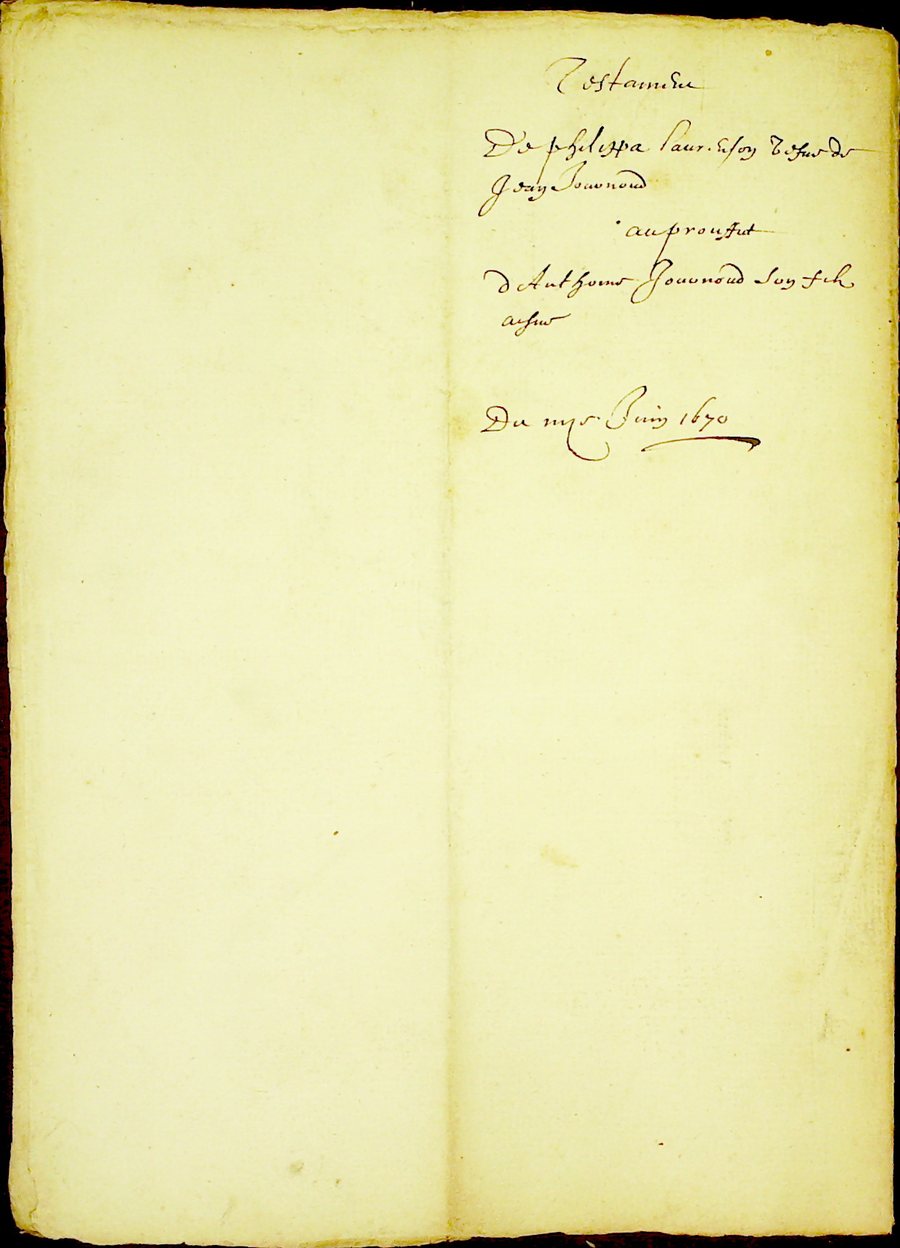 Testament
De philippa Laurenson vefue de
Jean Jouvnoud
au prouffit
d'Anthoine Jouvnoud son filz
aisne
Du Juin 1670